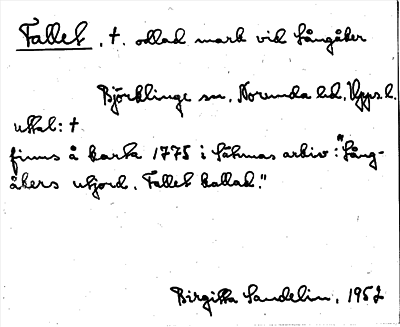 Fallet, †. odlad mark vid Långåker
Björklinge sn. Norunda hd. Upps. l.
uttal: †
finns å karta 1775 i Låhmas arkiv: "Lång-
åkers utjord. Fallet kallad."
Birgitta Sandelin, 1952